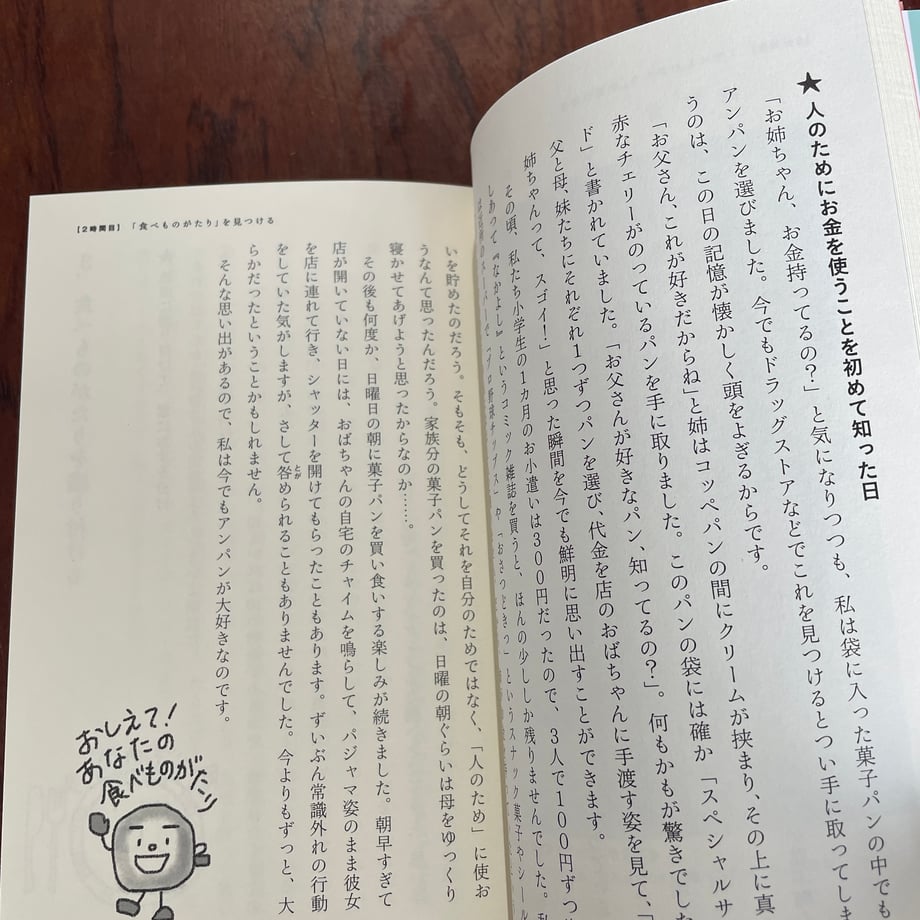 ★人のためにお金を使うことを初めて知った日
「お姉ちゃん、お金持ってるの？」と気になりつつも、私は袋に入った菓子パンの中でも
アンパンを選びました。今でもドラッグストアなどでこれを見つけるとつい手に取ってしま
うのは、この日の記憶が懐かしく頭をよぎるからです。
「お父さん、これが好きだからね」と姉はコッペパンの間にクリームが挟まり、その上に真
赤なチェリーがのっているパンを手に取りました。このパンの袋には確か「スペシャルサ
ド」と書かれていました。「お父さんが好きなパン、知ってるの？」。何もかもが驚きでした
父と母、妹たちにそれぞれ1つずつパンを選び、代金を店のおばちゃんに手渡す姿を見て、「
姉ちゃんって、スゴイ！」と思った瞬間を今でも鮮明に思い出すことができます。
その頃、私たち小学生の1カ月のお小遣いは300円だったので、3人で100円ずつ
しあって『なかよし』というコミック雑誌を買うと、ほんの少ししか残りませんでした。
「プロ野球チップス」や「おさつどきっ」というスナック菓子やシール
【2時間目】「食べものがたり」を見つける
いを貯めたのだろう。そもそも、どうしてそれを自分のためではなく、「人のため」に使お
うなんて思ったんだろう。家族分の菓子パンを買ったのは、日曜の朝ぐらいは母をゆっくり
寝かせてあげようと思ったからなのか……。
その後も何度か、日曜日の朝に菓子パンを買い食いする楽しみが続きました。朝早すぎて
店が開いていない日には、おばちゃんの自宅のチャイムを鳴らして、パジャマ姿のまま彼女
を店に連れて行き、シャッターを開けてもらったこともあります。ずいぶん常識外れの行動
をしていた気がしますが、さして咎められることもありませんでした。今よりもずっと、大
らかだったということかもしれません。
そんな思い出があるので、私は今でもアンパンが大好きなのです。
おしえて！
あなたの
食べものがたり